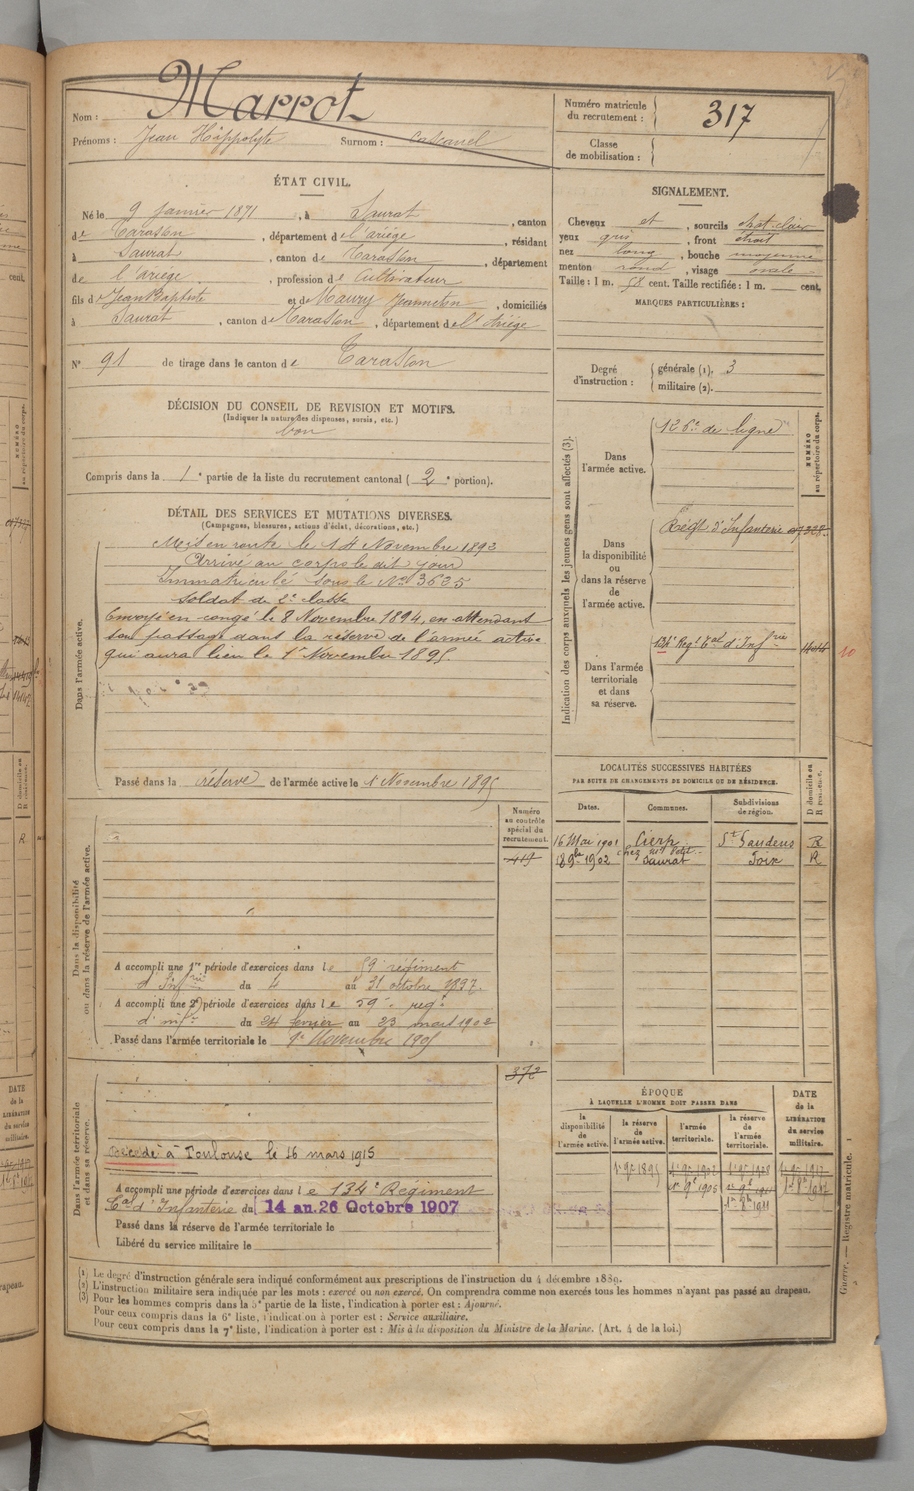 Marrot
Nom :
Prénoms : Jean Hippolyte Surnom : Castanel
Numéro matricule du recrutement : 317
Classe de mobilisation :
ÉTAT CIVIL.
Né le 9 Janvier 1871, à Saurat, canton
de Tarascon, département de l'ariége, résidant
à Saurat, canton de Tarascon, département
de l'ariége, profession de Cultivateur
fils de Jean Baptiste et de Maury Jeanneton, domiciliés
à Saurat, canton de Tarascon, département de l'Ariége
N° 91 de tirage dans le canton de Tarascon
DÉCISION DU CONSEIL DE REVISION ET MOTIFS.
(Indiquer la nature des dispenses, sursis, etc.)
bon
Compris dans la 1e partie de la liste du recrutement cantonal (2e portion).
SIGNALEMENT.
Cheveux et, sourcils chat. clair
yeux gris, front étroit
nez long, bouche moyenne
menton rond, visage ovale
Taille : 1 m. 58 cent. Taille rectifiée : 1 m. cent.
MARQUES PARTICULIÈRES :
Degré d'instruction : générale (1). 3
militaire (2).
DÉTAIL DES SERVICES ET MUTATIONS DIVERSES.
(Campagnes, blessures, actions d'éclat, décorations, etc.)
Dans l'armée active.
Mis en route le 14 Novembre 1892
Arrivé au corps le dit jour
Immatriculé sous le N° 3625
soldat de 2e classe
Envoyé en congé le 8 Novembre 1894, en attendant
son passage dans la réserve de l'armée active
qui aura lieu le 1er Novembre 1895.
Passé dans la réserve de l'armée active le 1 Novembre 1895
Indication des corps auxquels les jeunes gens sont affectés (3).
NUMÉRO au répertoire du corps.
Dans l'armée active.
126e de ligne
Dans la disponibilité ou dans la réserve de l'armée active.
Régt d'Infanterie
Dans l'armée territoriale et dans sa réserve.
Regt Tal d'Infrie
LOCALITÉS SUCCESSIVES HABITÉES
PAR SUITE DE CHANGEMENTS DE DOMICILE OU DE RÉSIDENCE.
Dates. Communes. Subdivisions de région. D domicile ou R résidence.
16 Mai 1901 Cierp St Gaudens R
chez Mr Petit
18 9bre 1902 Saurat Foix R
Dans la disponibilité ou dans la réserve de l'armée active.
Numéro au contrôle spécial du recrutement.
419
A accompli une 1re période d'exercices dans le 59 régiment
d'Infrie du 4 au 31 octobre 1897.
A accompli une 2e période d'exercices dans le 59e reg.
d'infie du 24 fevrier au 23 mars 1902
Passé dans l'armée territoriale le 1er Novembre 1905
Dans l'armée territoriale et dans sa réserve.
372
Décédé à Toulouse le 16 mars 1915
A accompli une période d'exercices dans le 134e Régiment
Tal d'Infanterie du 14 au 26 Octobre 1907
Passé dans la réserve de l'armée territoriale le
Libéré du service militaire le
ÉPOQUE
À LAQUELLE L'HOMME DOIT PASSER DANS
la disponibilité de l'armée active. la réserve de l'armée active. l'armée territoriale. la réserve de l'armée territoriale. DATE de la LIBÉRATION du service militaire.
1er 9e 1895
(1) Le degré d'instruction générale sera indiqué conformément aux prescriptions de l'instruction du 4 décembre 1889.
(2) L'instruction militaire sera indiquée par les mots : exercé ou non exercé. On comprendra comme non exercés tous les hommes n'ayant pas passé au drapeau.
(3) Pour les hommes compris dans la 5e partie de la liste, l'indication à porter est : Ajourné.
Pour ceux compris dans la 6e liste, l'indication à porter est : Service auxiliaire.
Pour ceux compris dans la 7e liste, l'indication à porter est : Mis à la disposition du Ministre de la Marine. (Art. 4 de la loi.)
Guerre. — Registre matricule.